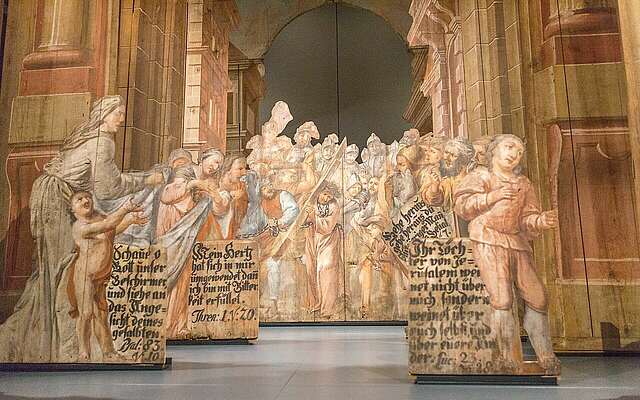 Schaue o
Gott unser
Beschirmer
und siehe an
das Ange-
sicht deines
gesalbten.
Psal: 83
V. 10
Mein Hertz
hat sich in mir
umgewendet dan
ich bin mit Bitter
keit erfüllet.
Thren: 1. V. 20.
Ihr Töch-
ter von Je-
rusalem wei-
net nicht über
mich sondern
weinet über
euch selbst und
über euere Kin
der. Luc: 23
V. 28